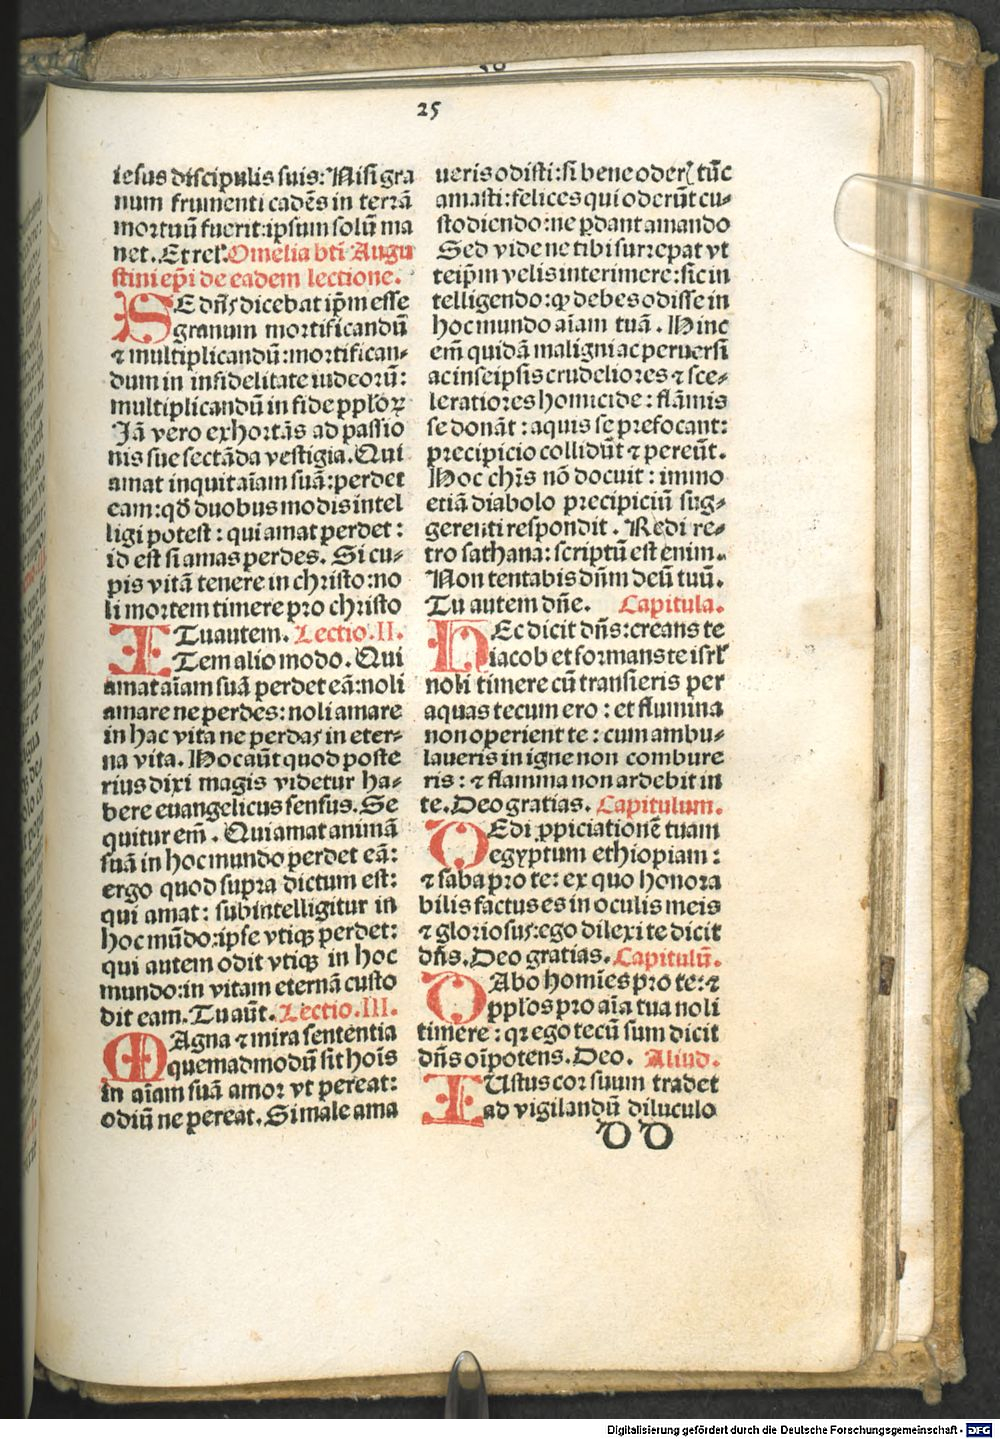 25
iesus discipulis suis: Nisi gra
num frumenti cadēs in terrā
mortuū fuerit: ipsum solū ma
net. Et rel'. Omelia bti Augu
stini ep̄i de eadem lectione.
SE dn̄s dicebat ip̄m esse
granum mortificandū
⁊ multiplicandū: mortifican-
dum in infidelitate iudeorū:
multiplicandū in fide pplōꝝ
Jā vero exhortās ad passio
nis sue sectāda vestigia. Qui
amat inquit aīam suā: perdet
eam: qđ duobus modis intel
ligi potest: qui amat perdet:
id est si amas perdes. Si cu-
pis vitā tenere in christo: no
li mortem timere pro christo
Tu autem. Lectio. II.
ITem alio modo. Qui
amat aīam suā perdet eā: noli
amare ne perdes: noli amare
in hac vita ne perdas in eter-
na vita. Hoc aūt quod poste
rius dixi magis videtur ha-
bere euangelicus sensus. Se
quitur em̄. Qui amat animā
suā in hoc mundo perdet eā:
ergo quod supra dictum est:
qui amat: subintelligitur in
hoc mūdo: ipse vtiqꝫ perdet:
qui autem odit vtiqꝫ in hoc
mundo: in vitam eternā custo
dit eam. Tu aūt. Lectio. III.
MAgna ⁊ mira sententia
quemadmodū sit hoīs
in aīam suā amor vt pereat:
odiū ne pereat. Si male ama
ueris odisti: si bene oder̄ tūc
amasti: felices qui oderūt cu-
stodiendo: ne ꝑdant amando
Sed vide ne tibi surrepat vt
teip̄m velis interimere: sic in
telligendo: ꝙ debes odisse in
hoc mundo aīam tuā. Hinc
em̄ quidā maligni ac peruersi
ac in seipsis crudeliores ⁊ sce-
leratiores homicide: flāmis
se donāt: aquis se prefocant:
precipicio collidūt ⁊ pereūt.
Hoc chr̄s nō docuit: immo
etiā diabolo precipiciū sug-
gerenti respondit. Redi re-
tro sathana: scriptū est enim.
Non tentabis dn̄m deū tuū.
Tu autem dn̄e. Capitula.
HEc dicit dn̄s: creans te
iacob et formans te isrl'
noli timere cū transieris per
aquas tecum ero: et flumina
non operient te: cum ambu-
laueris in igne non combure
ris: ⁊ flamma non ardebit in
te. Deo gratias. Capitulum.
DEdi ꝓpiciationē tuam
egyptum ethiopiam:
⁊ saba pro te: ex quo honora
bilis factus es in oculis meis
⁊ gloriosus: ego dilexi te dicit
dn̄s. Deo gratias. Capitulū.
DAbo homīes pro te: ⁊
pplōs pro aīa tua noli
timere: qꝛ ego tecū sum dicit
dn̄s oīpotens. Deo. Aliud.
IUstus cor suum tradet
ad vigilandū diluculo
D D
Digitalisierung gefördert durch die Deutsche Forschungsgemeinschaft - DFG